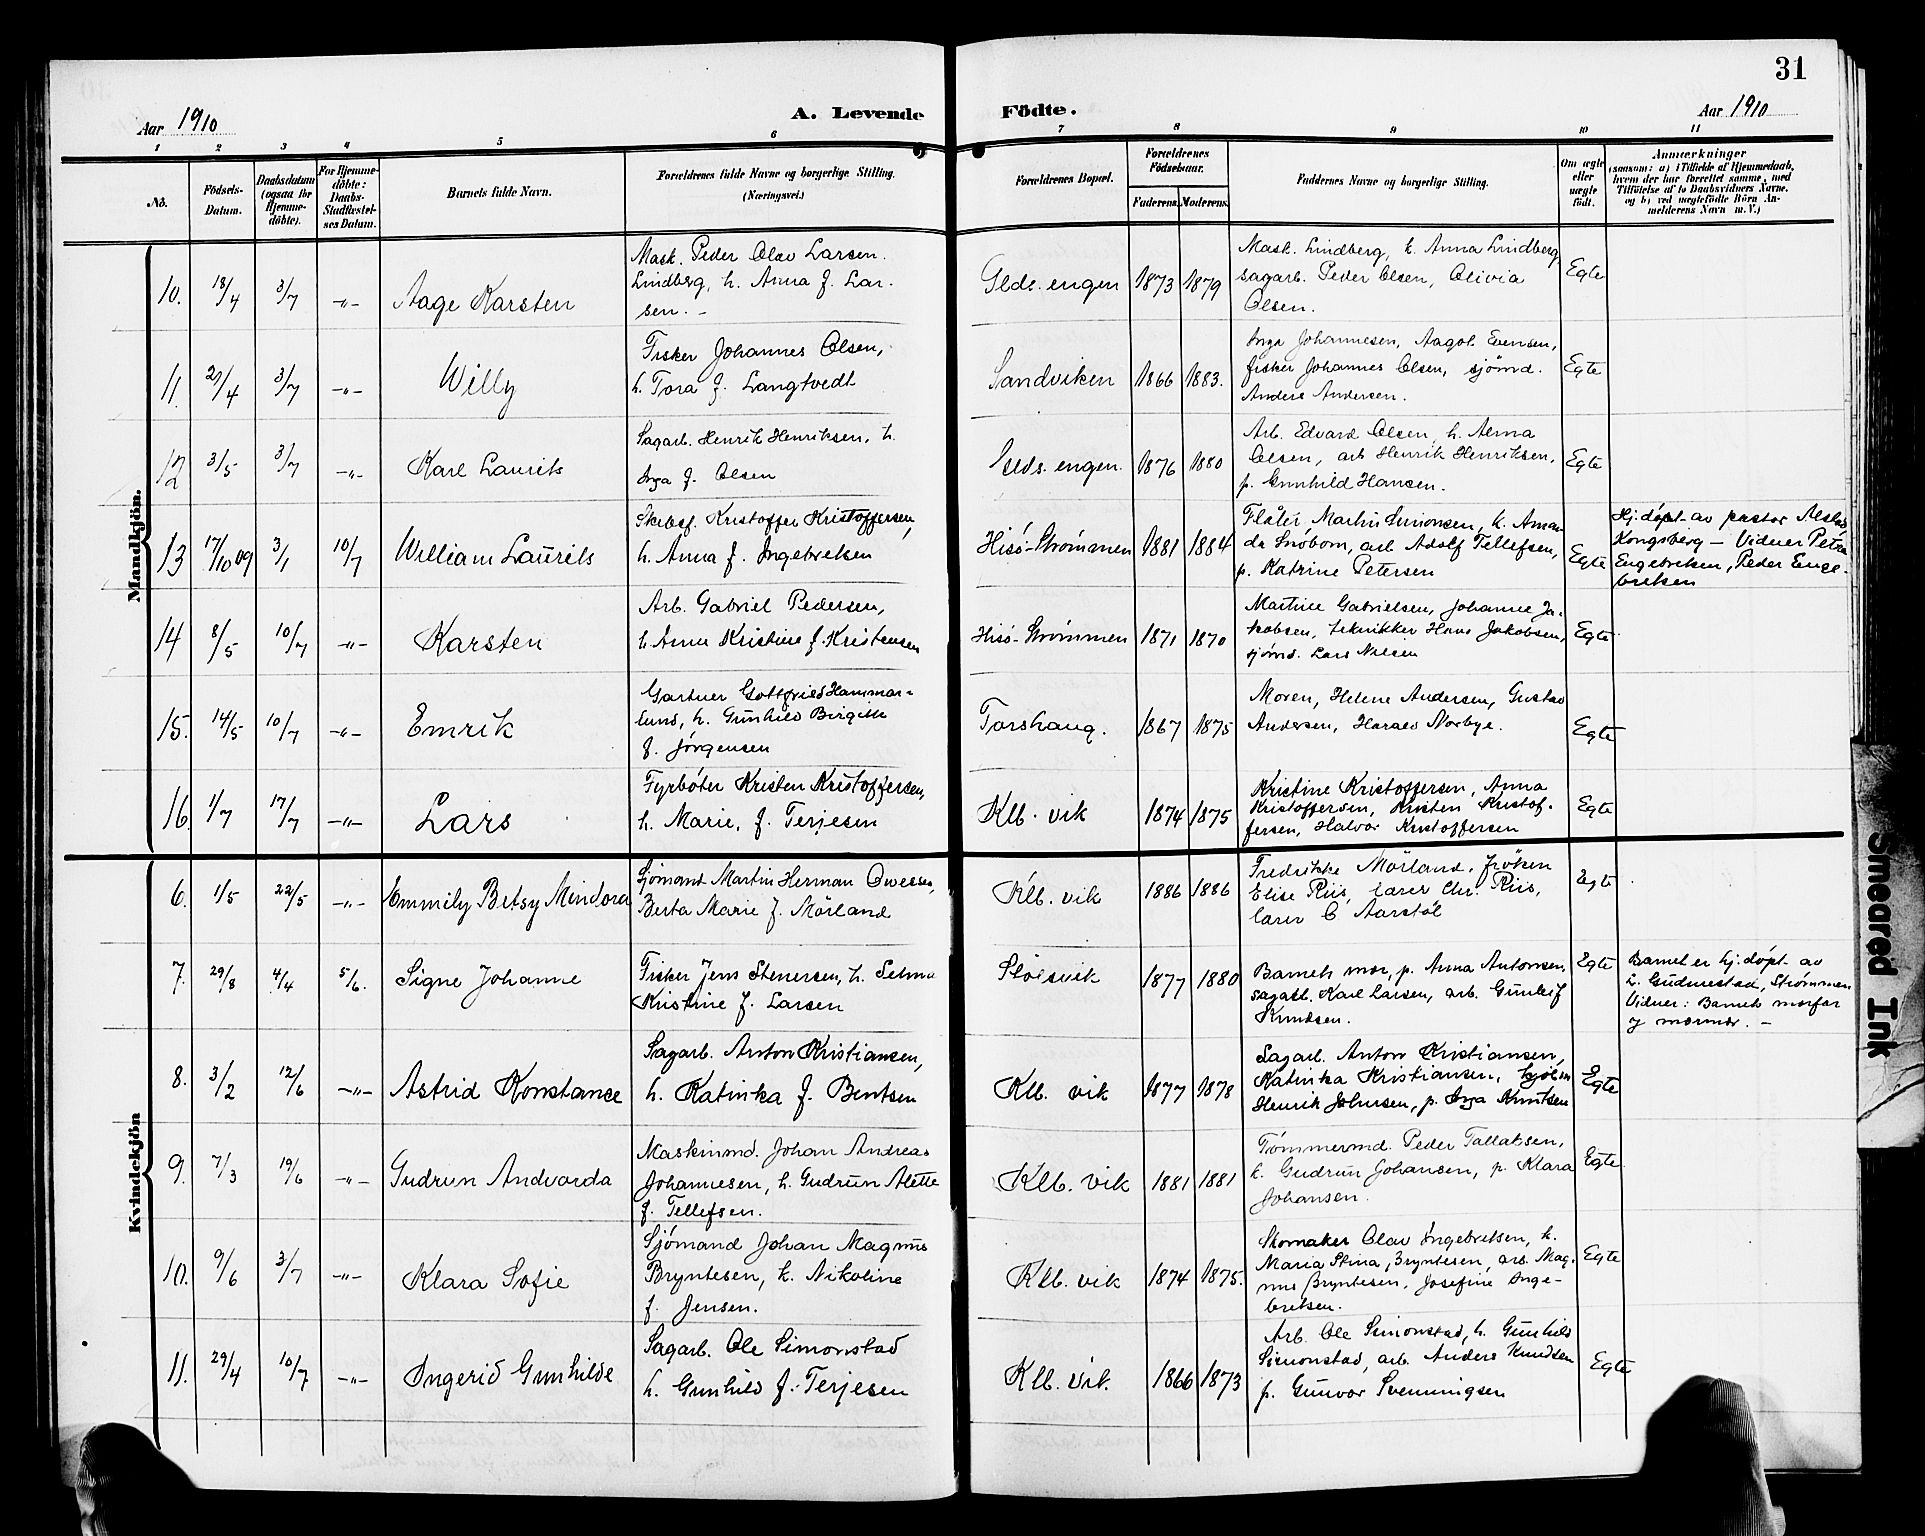 31
Aar 1910
A. Levende
Födte.
Aar 1910
1 2 3 4 5 6 7 8 9 10 11
No.
Födsels-
Datum.
Daabsdatum
(ogsaa for
Hjemme-
döbte).
For Hjemme-
döbte:
Daabs-
Stadfæstel-
ses Datum.
Barnets fulde Navn.
Forældrenes fulde Navne og borgerlige Stilling.
(Næringsvei.)
Forældrenes Bopæl.
Forældrenes
Födselsaar.
Faderens. Moderens.
Faddernes Navne og borgerlige Stilling.
Om ægte
eller
uægte
födt.
Anmærkninger
(saasom: a) i Tilfælde af Hjemmedaab,
hvem der har forrettet samme, med
Tilföielse af to Daabsvidners Navne.
og b) ved uægtefödte Börn An-
melderens Navn m. V.)
Mandkjön.
10. 18/4 3/7 -"- Aage Karsten
Mask. Peder Olav Larsen
Lindberg, h. Anna f. Lar-
sen. -
Glds. engen 1873 1879
Mask. Lindberg, h. Anna Lindberg,
sagarb. Peder Olsen, Olivia
Olsen.
Egte
11. 27/4 3/7 -"- Willy
Fisker Johannes Olsen,
h. Tora f. Langtvedt
Sandviken 1866 1883.
Inga Johannesen, Aagot Evensen,
fisker Johannes Olsen, sjömd.
Anders Andersen.
Egte
12 3/5 3/7 -"- Karl Laurits
Sagarb. Henrik Henriksen, h.
Inga f. Olsen
Glds. engen. 1876 1880
Arb. Edvard Olsen, h. Alma
Olsen, arb Henrik Henriksen,
p. Gunhild Hansen.
Egte
13 17/10 09 3/1 10/7 William Laurits
Skibsf. Kristoffer Kristoffersen,
h. Anna f. Ingebretsen
Hisö-Strömmen 1881 1884
Fløter Martin Simonsen, h. Aman-
da Snöbom, arb Adolf Tellefsen,
p. Katrine Petersen
Egte
Hj. döpt av pastor Alstad
Kongsberg - Vidner Petra
Engebretsen, Peder Enge-
bretsen
14 8/5 10/7 -"- Karsten
Arb. Gabriel Pedersen,
h. Anna Kristine f. Kristensen
Hisö-Strömmen 1871 1870
Martine Gabrielsen, Johanne Ja-
kobsen, tekniker Hans Jakobsen,
sjömd. Lars Nilsen
Egte
15. 14/5 10/7 -"- Emrik
Gartner Gottfried Hammar-
lund, h. Gunhild Birgitte
f. Jörgensen
Torshaug. 1867 1875
Moren, Helene Andersen, Gustav
Andersen, Harald Norbye.
Egte
16. 1/7 17/7 -"- Lars
Fyrböter Kristen Kristoffersen,
h. Marie, f. Terjesen
Klb. vik 1874 1875
Kristine Kristoffersen, Anna
Kristoffersen, Kristen Kristof-
fersen, Halvor Kristoffersen
Egte
Kvindekjön
6. 1/5 22/5 -"- Emmily Betsy Mindora
Sjömand Martin Herman Ovesen,
Berta Marie f. Mörland
Klb. vik 1886 1886
Fredrikke Mörland, fröken
Elise Riis, lærer Chr. Riis,
lærer C Aarstöl
Egte
7. 29/8 4/4 5/6. Signe Johanne
Fisker Jens Stenersen, h. Selma
Kristine f. Larsen
Stölsvik 1877 1880
Barnets mor, p. Anna Antonsen,
sagarb. Karl Larsen, arb. Gunleif
Knudsen.
Egte
Barnet er hj. döpt av
L. Gudmestad, Strömmen
Vidner: Barnets morfar
og mormor. -
8. 3/2 12/6 -"- Astrid Konstance
Sagarb. Anton Kristiansen,
h. Katinka f. Bentsen
Klb. vik 1877 1878
Sagarb. Anton Kristiansen,
Katinka Kristiansen,
Henrik Johnsen, p. Inga Knutsen
Egte
9. 7/3 19/6 -"- Gudrun Andvorda
Maskinmd. Johan Andreas
Johannesen, h. Gudrun Alette
f. Tellefsen.
Klb. vik 1881 1881
Tömmermd. Peder Tallaksen,
h. Gudrun Johansen, p. Klara
Johansen.
Egte
10. 9/6 3/7 -"- Klara Sofie
Sjömand Johan Magnus
Bryntesen, h. Nikoline
f. Jensen.
Klb. vik 1874 1875.
Skomaker Olav Ingebretsen, h.
Maria Stina, Bryntesen, arb. Mag-
nus Bryntesen, Josefine Inge-
bretsen.
Egte
11. 29/4 10/7 -"- Ingerid Gunhilde
Sagarb. Ole Simonstad
h. Gunhild f. Terjesen
Klb. vik. 1866 1873
Arb. Ole Simonstad, h. Gunhild
Simonstad, arb. Anders Knudsen
p. Gunvor Svenningsen
Egte
Smeared Ink